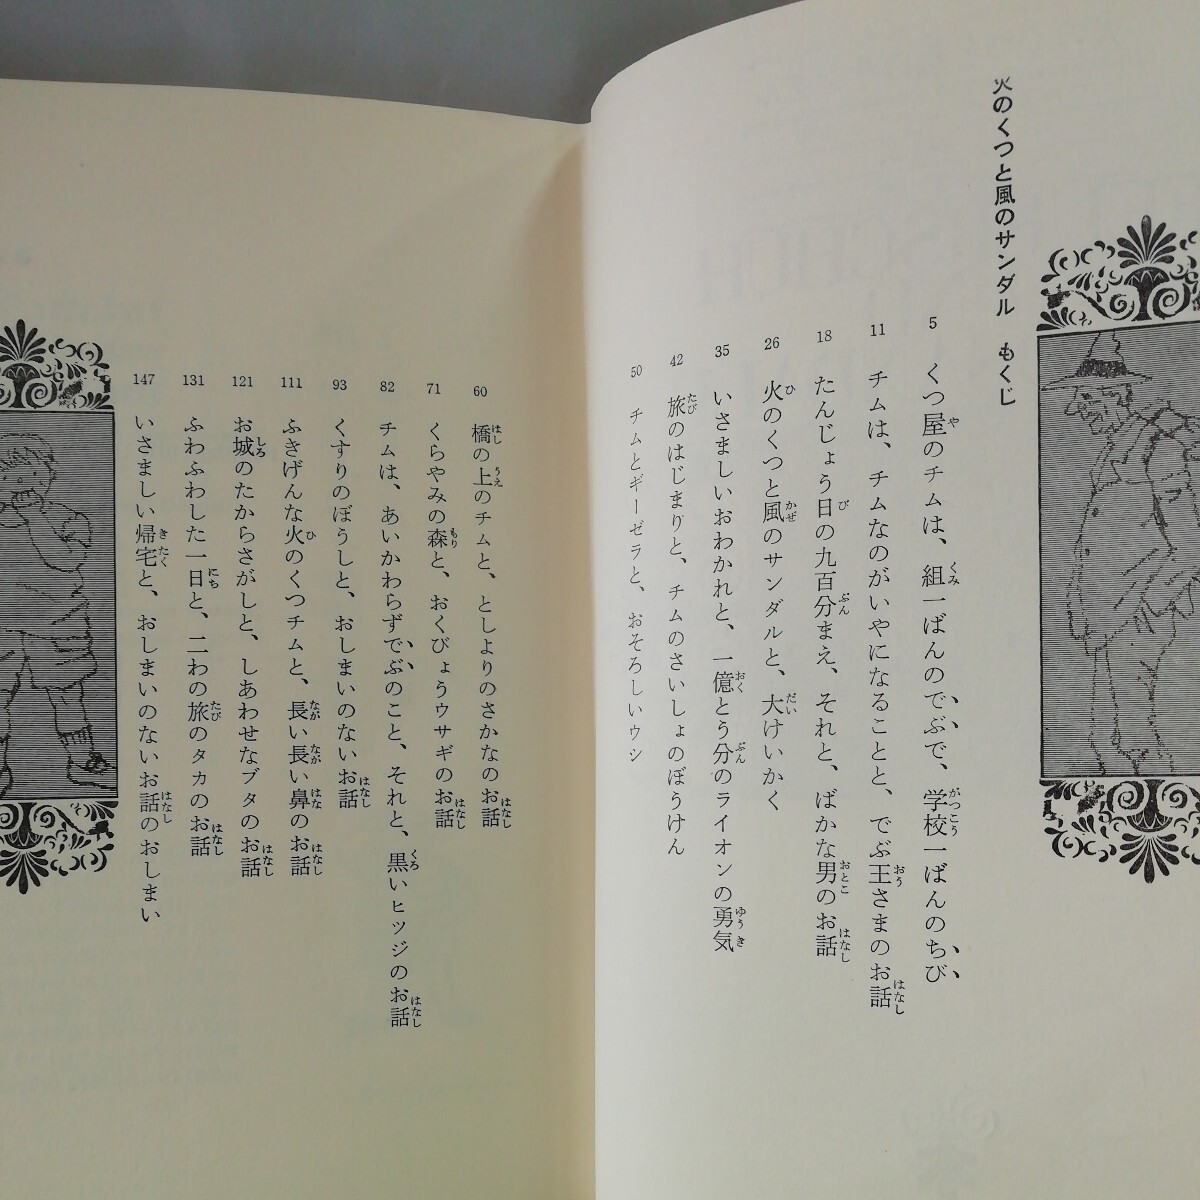 火のくつと風のサンダル もくじ
5 くつ屋のチムは、組一ばんのでぶで、学校一ばんのちび
11 チムは、チムなのがいやになることと、でぶ王さまのお話
18 たんじょう日の九百分まえ、それと、ばかな男のお話
26 火のくつと風のサンダルと、大けいかく
35 いさましいおわかれと、一億とう分のライオンの勇気
42 旅のはじまりと、チムのさいしょのぼうけん
50 チムとギーゼラと、おそろしいウシ
60 橋の上のチムと、としよりのさかなのお話
71 くらやみの森と、おくびょうウサギのお話
82 チムは、あいかわらずでぶのこと、それと、黒いヒツジのお話
93 くすりのぼうしと、おしまいのないお話
111 ふきげんな火のくつチムと、長い長い鼻のお話
121 お城のたからさがしと、しあわせなブタのお話
131 ふわふわした一日と、二わの旅のタカのお話
147 いさましい帰宅と、おしまいのないお話のおしまい